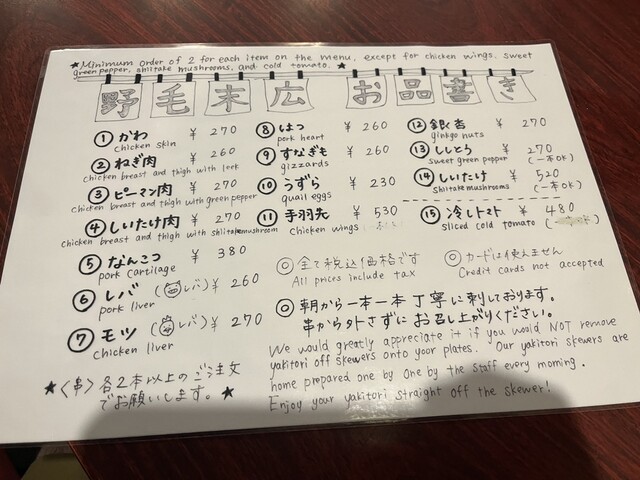 ★Minimum order of 2 for each item on the menu, except for chicken wings, sweet
green pepper, shiitake mushrooms, and cold tomato. ★
野毛末広 お品書き
① かわ ¥ 270
chicken skin
② ねぎ肉 ¥ 260
chicken breast and thigh with leek
③ ピーマン肉 ¥ 270
chicken breast and thigh with green pepper
④ しいたけ肉 ¥ 270
chicken breast and thigh with shiitakemushroom
⑤ なんこつ ¥ 380
pork cartilage
⑥ レバ (レバ) ¥ 260
pork liver
⑦ モツ (レバ) ¥ 270
chicken liver
★〈串〉各2本以上のご注文
でお願いします。 ★
⑧ はつ ¥ 260
pork heart
⑨ すなぎも ¥ 260
gizzards
⑩ うずら ¥ 230
quail eggs
⑪ 手羽先 ¥ 530
Chicken wings
⑫ 銀杏 ¥ 270
ginkgo nuts
⑬ ししとう ¥ 270
sweet green pepper (一本OK)
⑭ しいたけ ¥ 520
Shiitake mushrooms (一本OK)
⑮ 冷しトマト ¥ 480
sliced cold tomato
◎ 全て税込価格です
All prices include tax
◎ カードは使えません
Credit cards not accepted
◎ 朝から一本一本丁寧に刺しております。
串から外さずにお召し上がりください。
We would greatly appreciate it if you would NOT remove
yakitori off skewers onto your plates. Our yakitori skewers are
home prepared one by one by the staff every morning.
Enjoy your yakitori straight off the skewer!